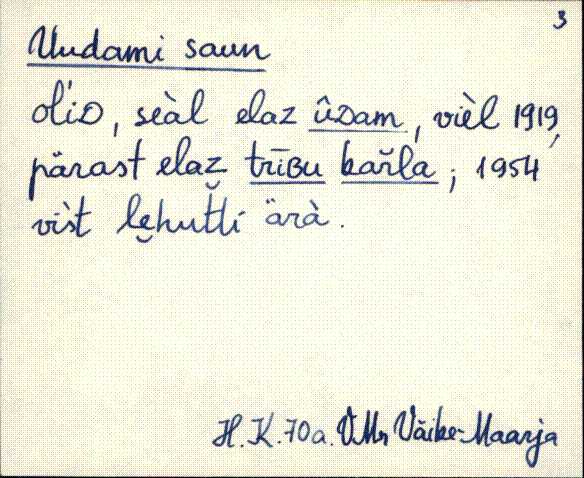 3
Uudami saun
oĺıD, seàl elaz ûDam, vièl 1919,
pärast elaz trīBu kařla; 1954
vìst lęhut̆ti ärà.
H. K. 70a. VMr Väike-Maarja